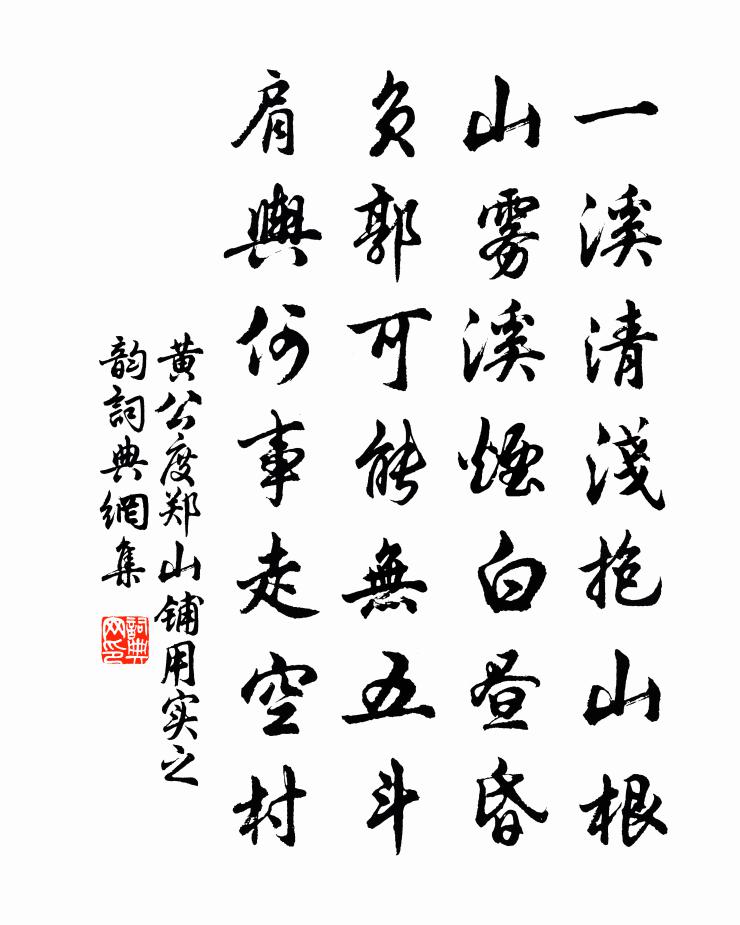 一溪清淺抱山根
山雾溪煙白晝昏
負郭可能無五斗
肩輿何事走空村
黄公度郑山铺用实之
韵詞典網集
詞典网印